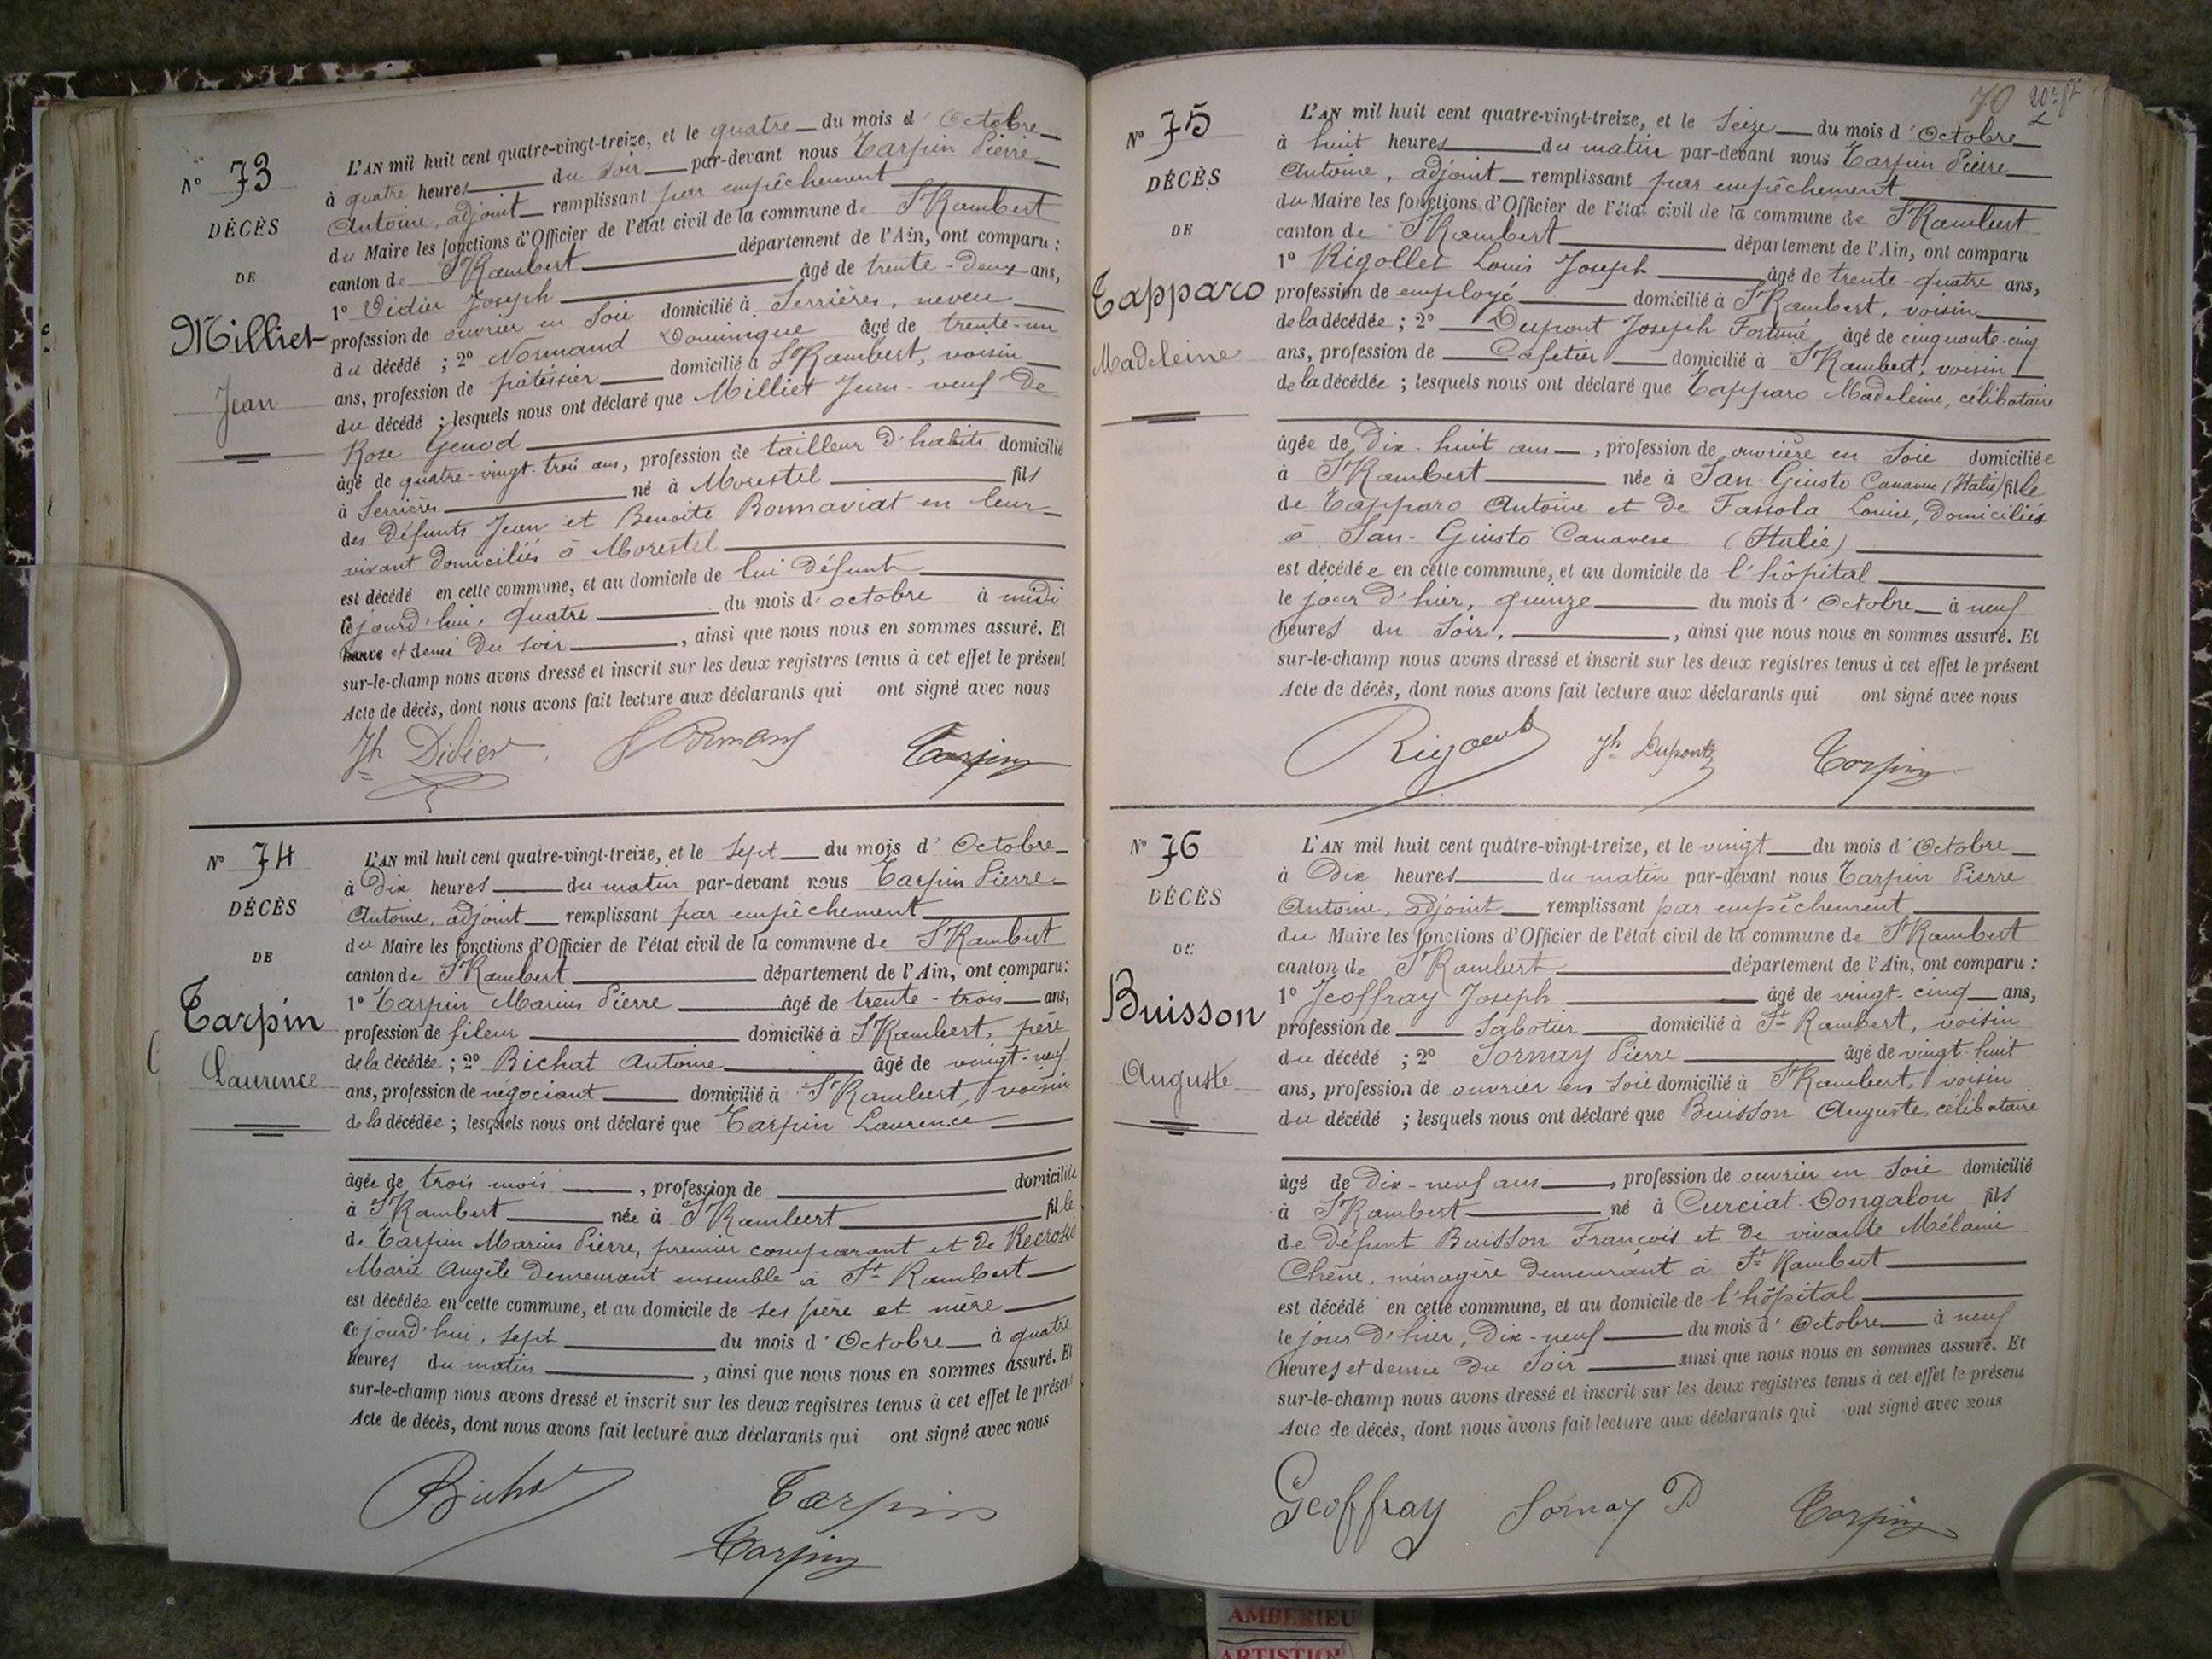 N° 73
DÉCÈS
DE
Milliet
Jean
L'AN mil huit cent quatre-vingt-treize, et le quatre du mois d'Octobre
à quatre heures du soir par-devant nous Tarpin Pierre
Antoine, adjoint remplissant par empêchement
du Maire les fonctions d'Officier de l'état civil de la commune de St Rambert
canton de St Rambert département de l'Ain, ont comparu :
1° Didier Joseph âgé de trente-deux ans,
profession de ouvrier en soie domicilié à Serrières, neveu
du décédé ; 2° Normand Dominique âgé de trente-un
ans, profession de patissier domicilié à St Rambert, voisin
du décédé ; lesquels nous ont déclaré que Milliet Jean veuf de
Rose Genod
âgé de quatre-vingt-trois ans, profession de tailleur d'habits domicilié
à Serrières né à Morestel fils
des défunts Jean et Benoite Bonnaviat en leur
vivant domiciliés à Morestel
est décédé en cette commune, et au domicile de lui défunt
ce jourd'hui, quatre du mois d'octobre à midi
heure et demi du soir, ainsi que nous nous en sommes assuré. Et
sur-le-champ nous avons dressé et inscrit sur les deux registres tenus à cet effet le présent
Acte de décès, dont nous avons fait lecture aux déclarants qui ont signé avec nous
Jh Didier Normand Tarpin
N° 74
DÉCÈS
DE
Tarpin
Laurence
L'AN mil huit cent quatre-vingt-treize, et le sept du mois d'Octobre
à Dix heures du matin par-devant nous Tarpin Pierre
Antoine, adjoint remplissant par empêchement
du Maire les fonctions d'Officier de l'état civil de la commune de St Rambert
canton de St Rambert département de l'Ain, ont comparu :
1° Tarpin Marius Pierre âgé de trente-trois ans,
profession de fileur domicilié à St Rambert, père
de la décédée ; 2° Bichat Antoine âgé de vingt-neuf
ans, profession de négociant domicilié à St Rambert, voisin
de la décédée ; lesquels nous ont déclaré que Tarpin Laurence
âgée de trois mois, profession de domiciliée
à St Rambert née à St Rambert fille
de Tarpin Marius Pierre, premier comparant et de
Marie Angèle demeurant ensemble à St Rambert
est décédée en cette commune, et au domicile de ses père et mère
ce jourd'hui, sept du mois d'Octobre à quatre
heures du matin, ainsi que nous nous en sommes assuré. Et
sur-le-champ nous avons dressé et inscrit sur les deux registres tenus à cet effet le présent
Acte de décès, dont nous avons fait lecture aux déclarants qui ont signé avec nous
Bichat Tarpin
Tarpin
70
N° 75
DÉCÈS
DE
Tapparo
Madeleine
L'AN mil huit cent quatre-vingt-treize, et le Seize du mois d'Octobre
à huit heures du matin par-devant nous Tarpin Pierre
Antoine, adjoint remplissant par empêchement
du Maire les fonctions d'Officier de l'état civil de la commune de St Rambert
canton de St Rambert département de l'Ain, ont comparu
1° Rigollet Louis Joseph âgé de trente-quatre ans,
profession de employé domicilié à St Rambert, voisin
de la décédée ; 2° Dupont Joseph Fortuné âgé de cinquante-cinq
ans, profession de Cafetier domicilié à St Rambert, voisin
de la décédée ; lesquels nous ont déclaré que Tapparo Madeleine, célibataire
âgée de dix-huit ans, profession de ouvrière en soie domiciliée
à St Rambert née à San-Giusto Canavese (Italie) fille
de Tapparo Antoine et de Fassola Louise, domiciliés
à San-Giusto Canavese (Italie)
est décédée en cette commune, et au domicile de l'hôpital
le jour d'hier, quinze du mois d'Octobre à neuf
heures du soir, ainsi que nous nous en sommes assuré. Et
sur-le-champ nous avons dressé et inscrit sur les deux registres tenus à cet effet le présent
Acte de décès, dont nous avons fait lecture aux déclarants qui ont signé avec nous
Jh Dupont Tarpin
N° 76
DÉCÈS
DE
Buisson
Auguste
L'AN mil huit cent quatre-vingt-treize, et le vingt du mois d'Octobre
à Dix heures du matin par-devant nous Tarpin Pierre
Antoine, adjoint remplissant par empêchement
du Maire les fonctions d'Officier de l'état civil de la commune de St Rambert
canton de St Rambert département de l'Ain, ont comparu :
1° Jeoffray Joseph âgé de vingt-cinq ans,
profession de Sabotier domicilié à St Rambert, voisin
du décédé ; 2° Sornay Pierre âgé de vingt-huit
ans, profession de ouvrier en soie domicilié à St Rambert, voisin
du décédé ; lesquels nous ont déclaré que Buisson Auguste, célibataire
âgé de Dix-neuf ans, profession de ouvrier en soie domicilié
à St Rambert né à Curciat-Dongalon fils
de défunt Buisson François et de vivante Mélanie
Chêne, ménagère demeurant à St Rambert
est décédé en cette commune, et au domicile de l'hôpital
le jour d'hier, Dix-neuf du mois d'Octobre à neuf
heures et demie du soir ainsi que nous nous en sommes assuré. Et
sur-le-champ nous avons dressé et inscrit sur les deux registres tenus à cet effet le présent
Acte de décès, dont nous avons fait lecture aux déclarants qui ont signé avec nous
Geoffray Sornay P Tarpin
AMBERIEU